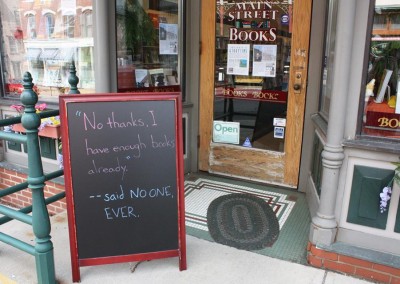 MAIN STREET
BOOKS
BOOKS SOCK
Open
"No thanks, I
have enough books
already.
-- said NO ONE,
EVER.
BOOKS